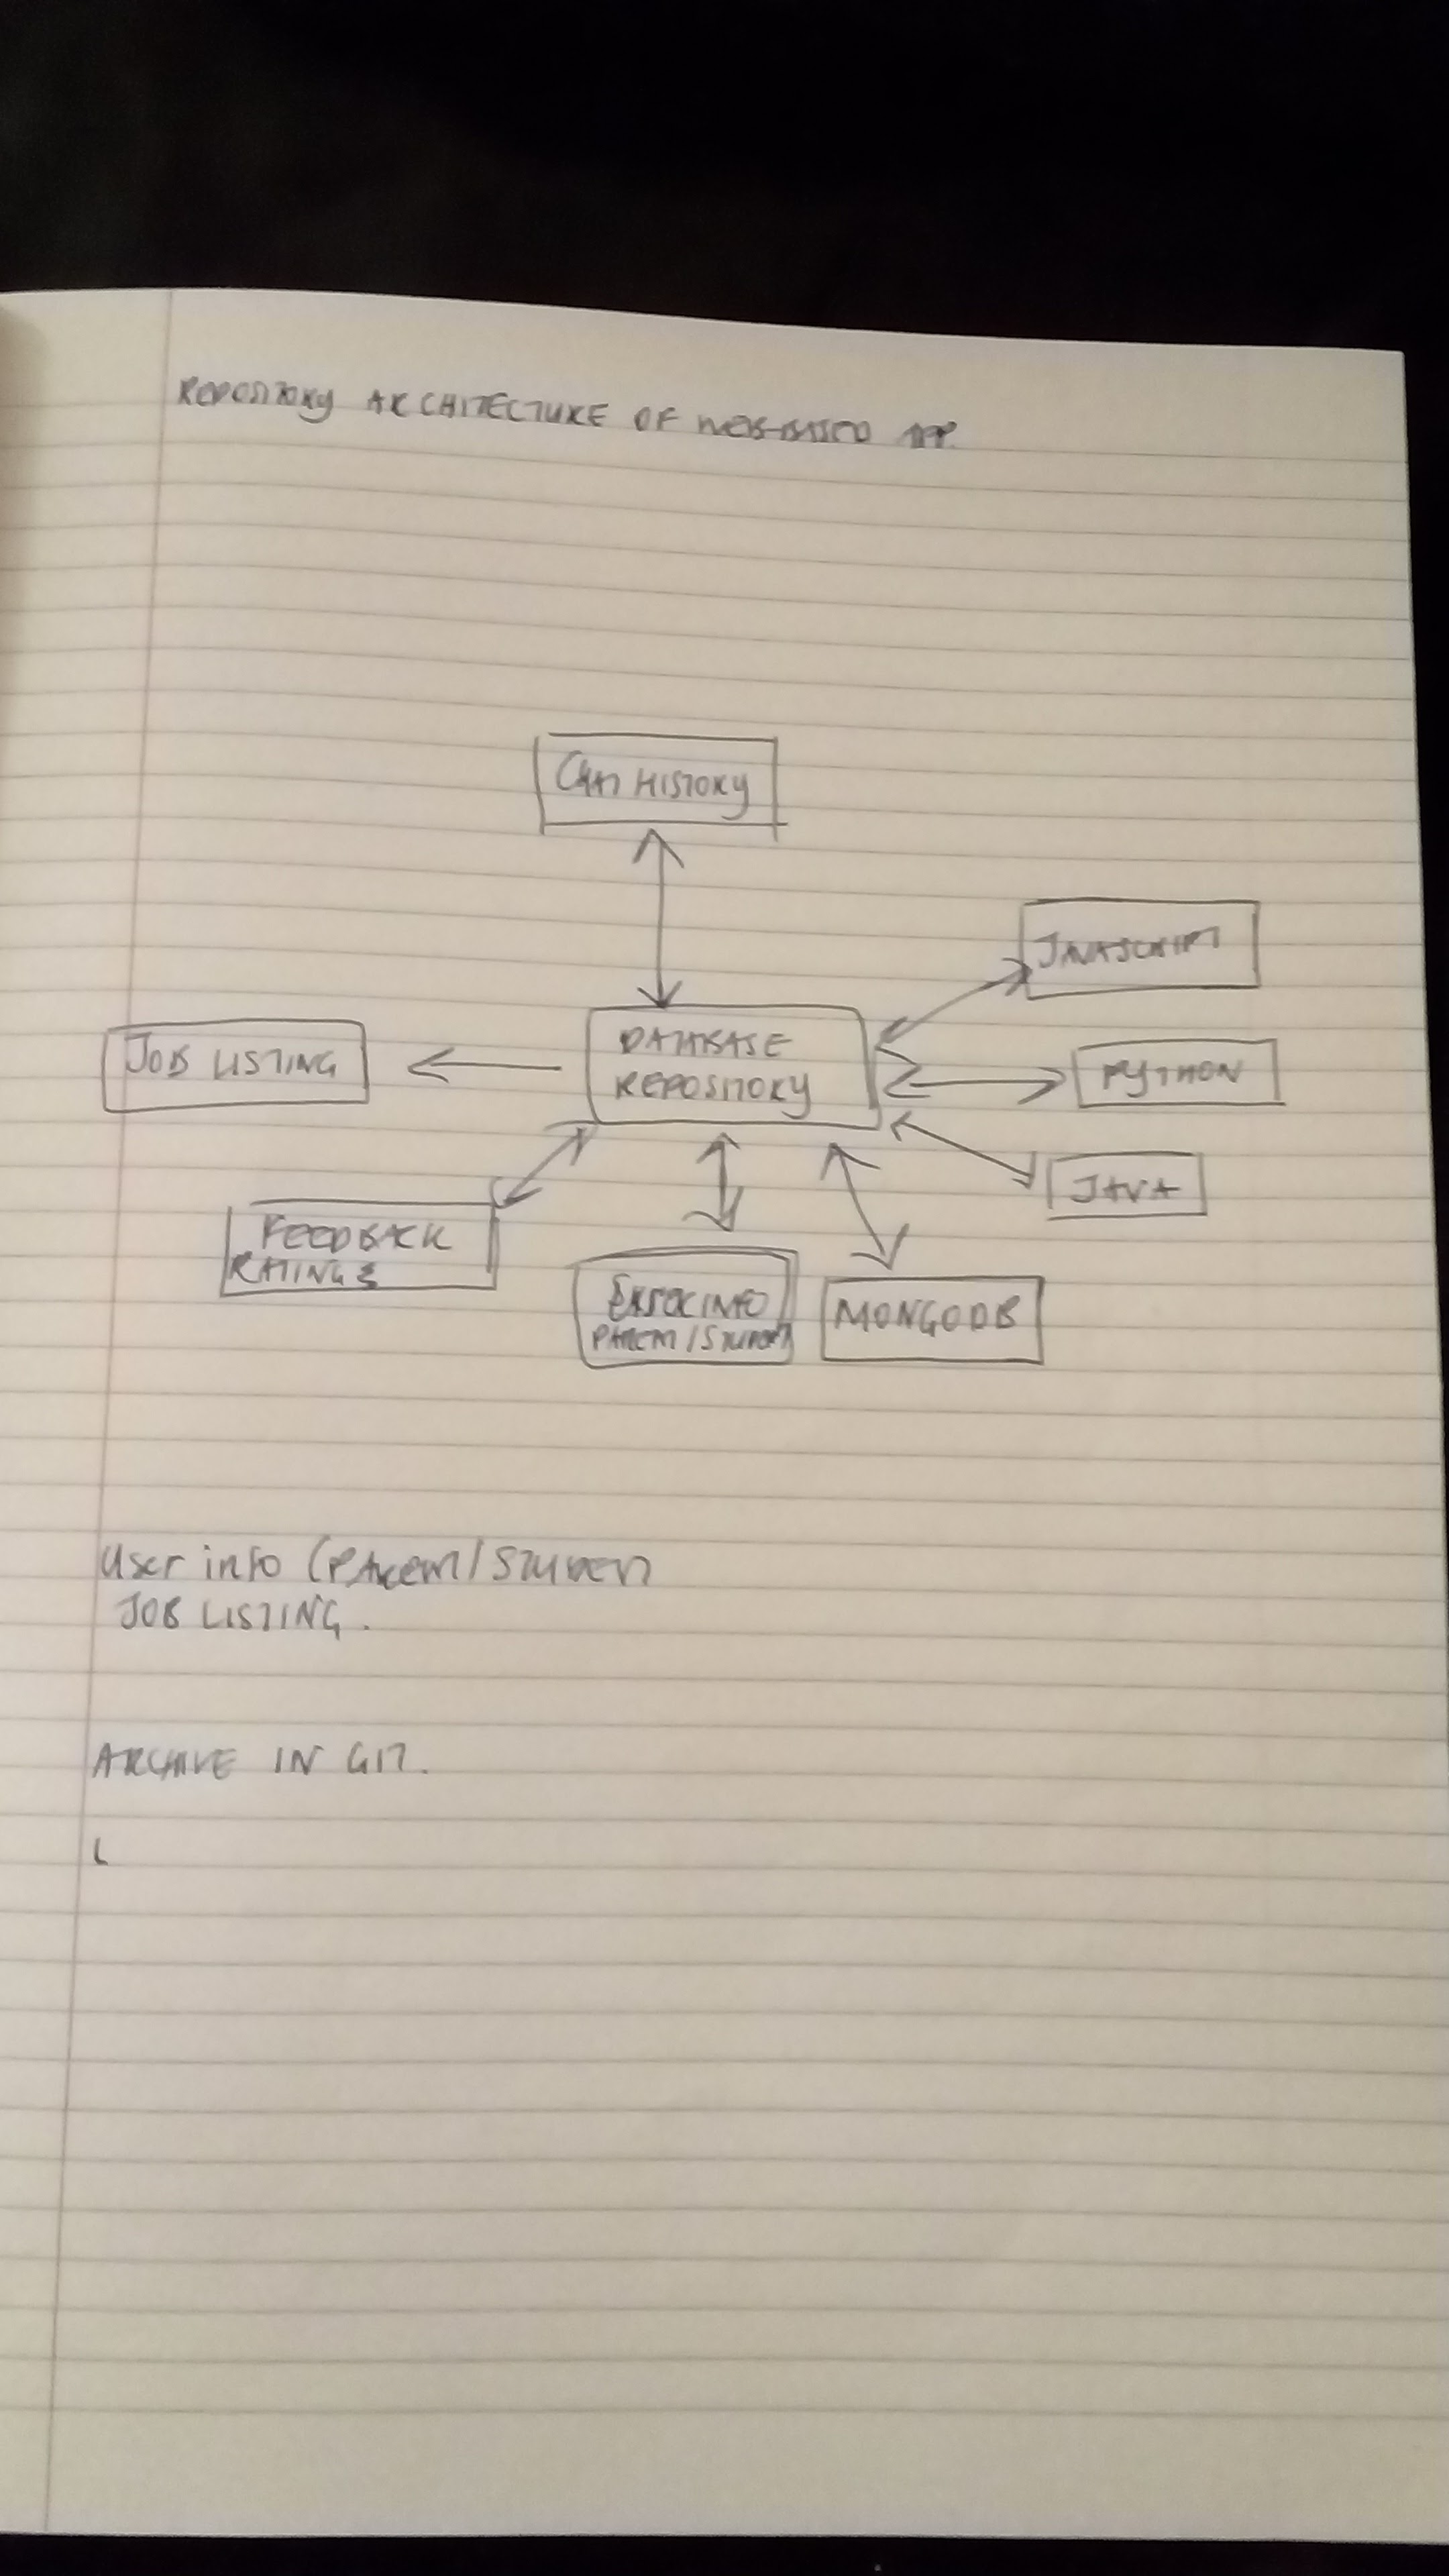 REPOSITORY ARCHITECTURE OF WEB-BASED APP.
CHAT HISTORY
JAVASCRIPT
DATABASE
REPOSITORY
JOB LISTING
PYTHON
JAVA
FEEDBACK
RATINGS
INFO
PARENT/STUDENT
MONGODB
User info (PARENT/STUDENT
JOB LISTING.
ARCHIVE IN GIT.
L